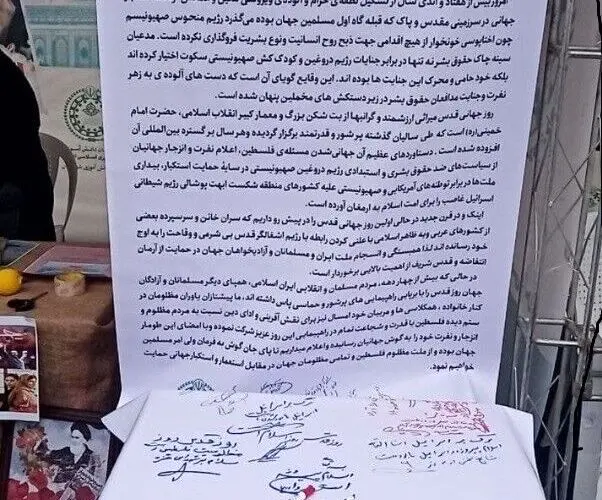 امروز بیش از هفتاد و اندی سال از تشکیل نطفه‌ی حرام و آلوده‌ی ویروسی
جهانی در سرزمینی مقدس و پاک که قبله گاه اول مسلمین جهان بوده می‌گذرد رژیم منحوس صهیونیسم
چون اختاپوسی خونخوار از هیچ اقدامی جهت ذبح روح انسانیت و نوع بشریت فروگذاری نکرده است. مدعیان
سینه چاک حقوق بشر نه تنها در برابر جنایات رژیم دروغین و کودک کش صهیونیستی سکوت اختیار کرده اند
بلکه خود حامی و محرک این جنایت ها بوده اند. این وقایع گویای آن است که دست های آلوده ی به زهر
نفرت و جنایت مدافعان حقوق بشر در زیر دستکش های مخملین پنهان شده است.
روز جهانی قدس میراثی ارزشمند و گرانبها از بت شکن بزرگ و معمار کبیر انقلاب اسلامی، حضرت امام
خمینی(ره) است که طی سالیان گذشته پر شور و قدرتمند برگزار گردیده و هر سال بر گستره بین المللی آن
افزوده شده است. دستاوردهای عظیم آن جهانی شدن مسئله‌ی فلسطین، اعلام نفرت و انزجار جهانیان
از سیاست‌های ضد حقوق بشری و استبدادی رژیم دروغین صهیونیستی در سایهٔ حمایت استکبار، بیداری
ملت‌ها در برابر توطئه‌های آمریکایی و صهیونیستی علیه کشورهای منطقه شکست ابهت پوشالی رژیم شیطانی
اسرائیل غاصب را برای امت اسلام به ارمغان آورده است.
اینک و در قرن جدید در حالی اولین روز جهانی قدس را در پیش رو داریم که سران خائن و سرسپرده بعضی
از کشورهای عربی و به ظاهر اسلامی با علنی کردن رابطه با رژیم اشغالگر قدس بی شرمی و وقاحت را به اوج
خود رسانده اند لذا همبستگی و انسجام ملت ایران و مسلمانان و آزادیخواهان جهان در حمایت از آرمان
انتفاضه و قدس شریف از اهمیت بالایی برخوردار است.
در حالی که بیش از چهار دهه، مردم مسلمان و انقلابی ایران اسلامی، همپای دیگر مسلمانان و آزادگان
جهان روز قدس را با برپایی راهپیمایی های پرشور و حماسی پاس داشته اند، ما پیشتازان یاوران مظلومان در
کنار خانواده، همکلاسی ها و مربیان خود امسال نیز برای نقش آفرینی و ادای دین نسبت به مردم مظلوم و
ستم دیده فلسطین با قدرت و شجاعت تمام در راهپیمایی این روز عزیز شرکت نموده و با امضای این طومار
انزجار و نفرت خود را به گوش جهانیان رسانده و اعلام میداریم تا پای جان گوش به فرمان ولی امر مسلمین
جهان بوده و از ملت مظلوم فلسطین و تمامی مظلومان جهان در مقابل استعمار و استکبار جهانی حمایت
خواهیم نمود.
مرگ بر اسرائیل
روز قدس روز